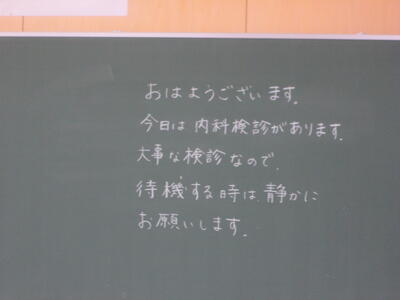 おはようございます。
今日は内科検診があります。
大事な検診なので、
待機する時は静かに
お願いします。